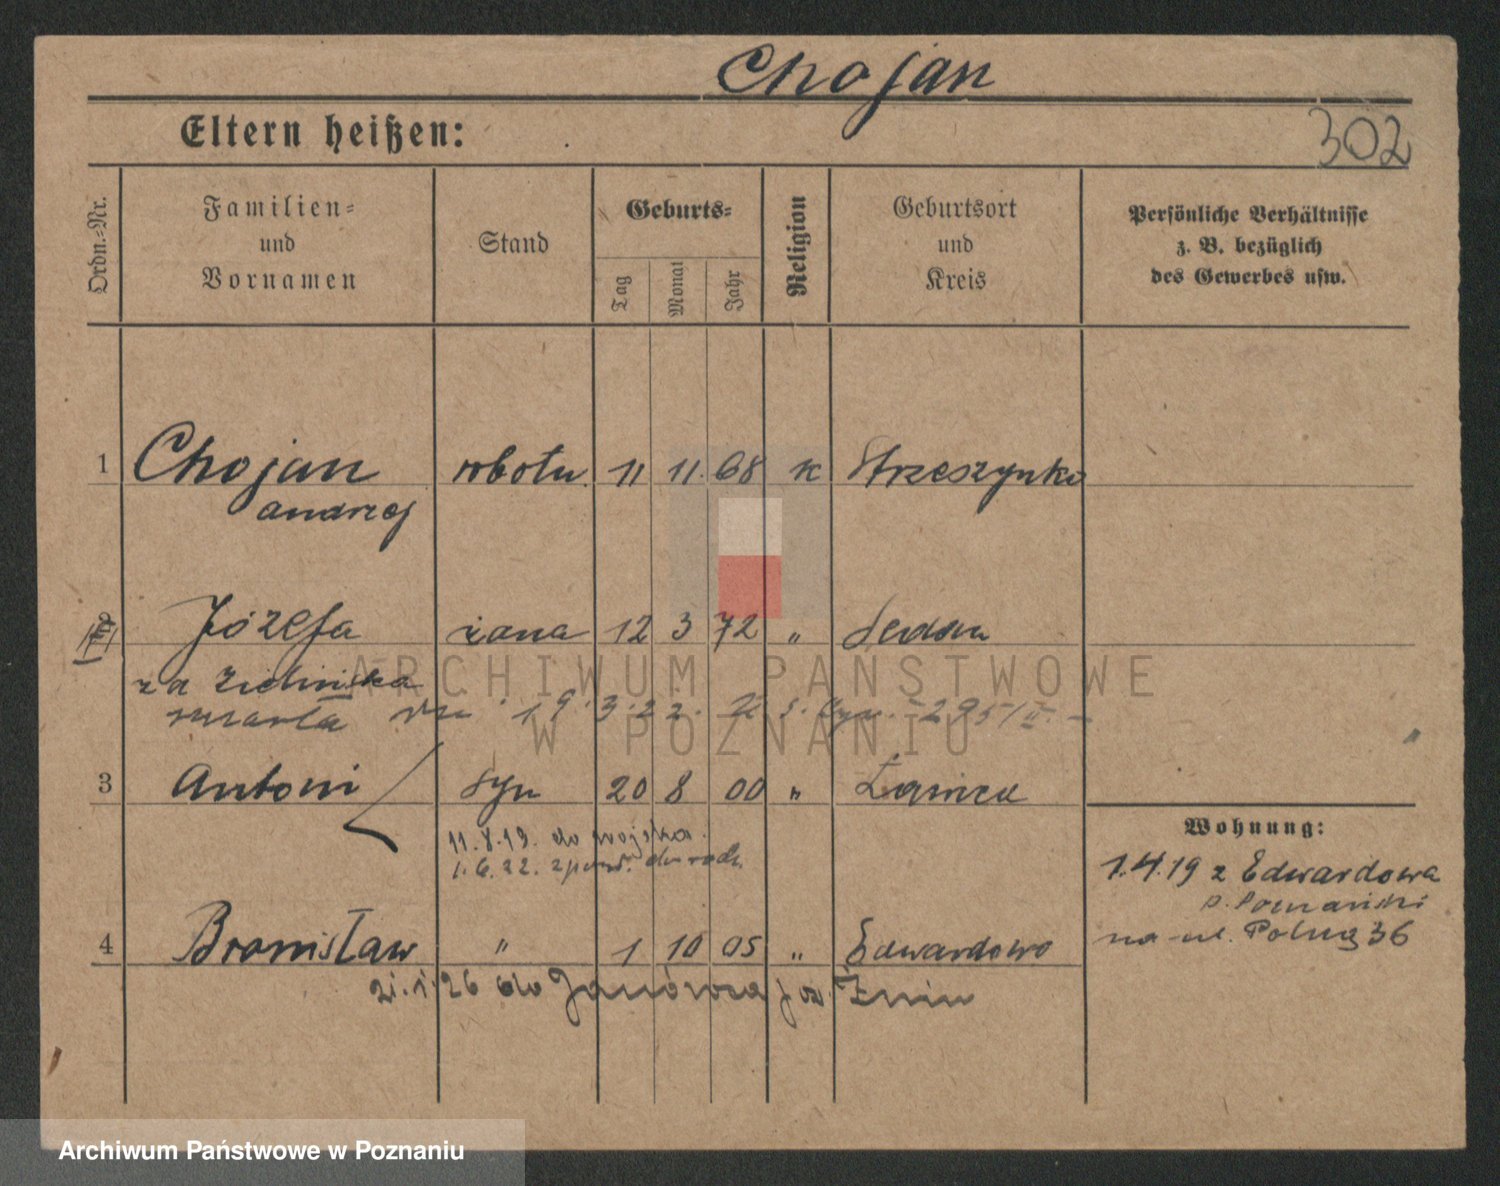 Chojan
Eltern heißen:
302
Ordn.-Nr.
Familien-
und
Vornamen
Stand
Geburts-
Tag
Monat
Jahr
Religion
Geburtsort
und
Kreis
Persönliche Verhältnisse
z. B. bezüglich
des Gewerbes usw.
1 Chojan robotn. 11 11. 68 K Strzeszynko
Andrzej
2 Józefa żona 12 3 72 "
za Zielińska
zmarła 19.3.22.
3 Antoni syn 20 8 00 "
11.8.19. do wojska.
1.6.22.
Wohnung:
1.4.19 z Edwardowa
p. Poznański
na ul. Polną 36
4 Bronisław " 1 10 05 " Edwardowo
21.1.26 do Janówca pow. Żnin
ARCHIWUM PAŃSTWOWE
W POZNANIU
Archiwum Państwowe w Poznaniu